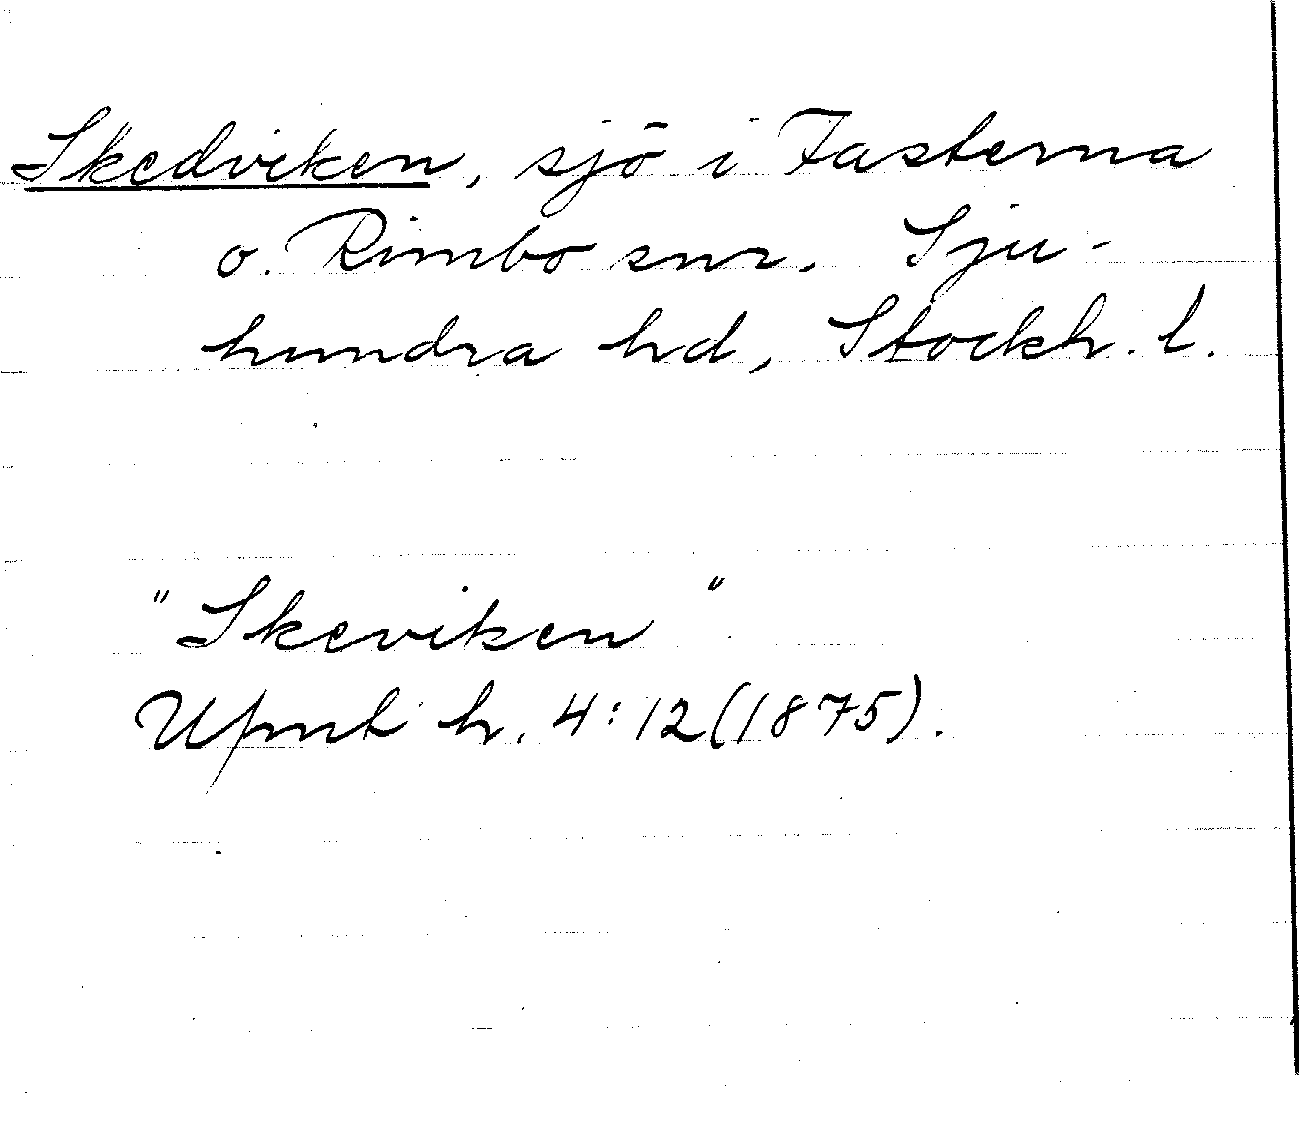 Skedviken, sjö i Fasterna
o. Rimbo snr. Sju-
hundra hd, Stockh. l.
"Skeviken"
Upmk h. 4:12 (1875).